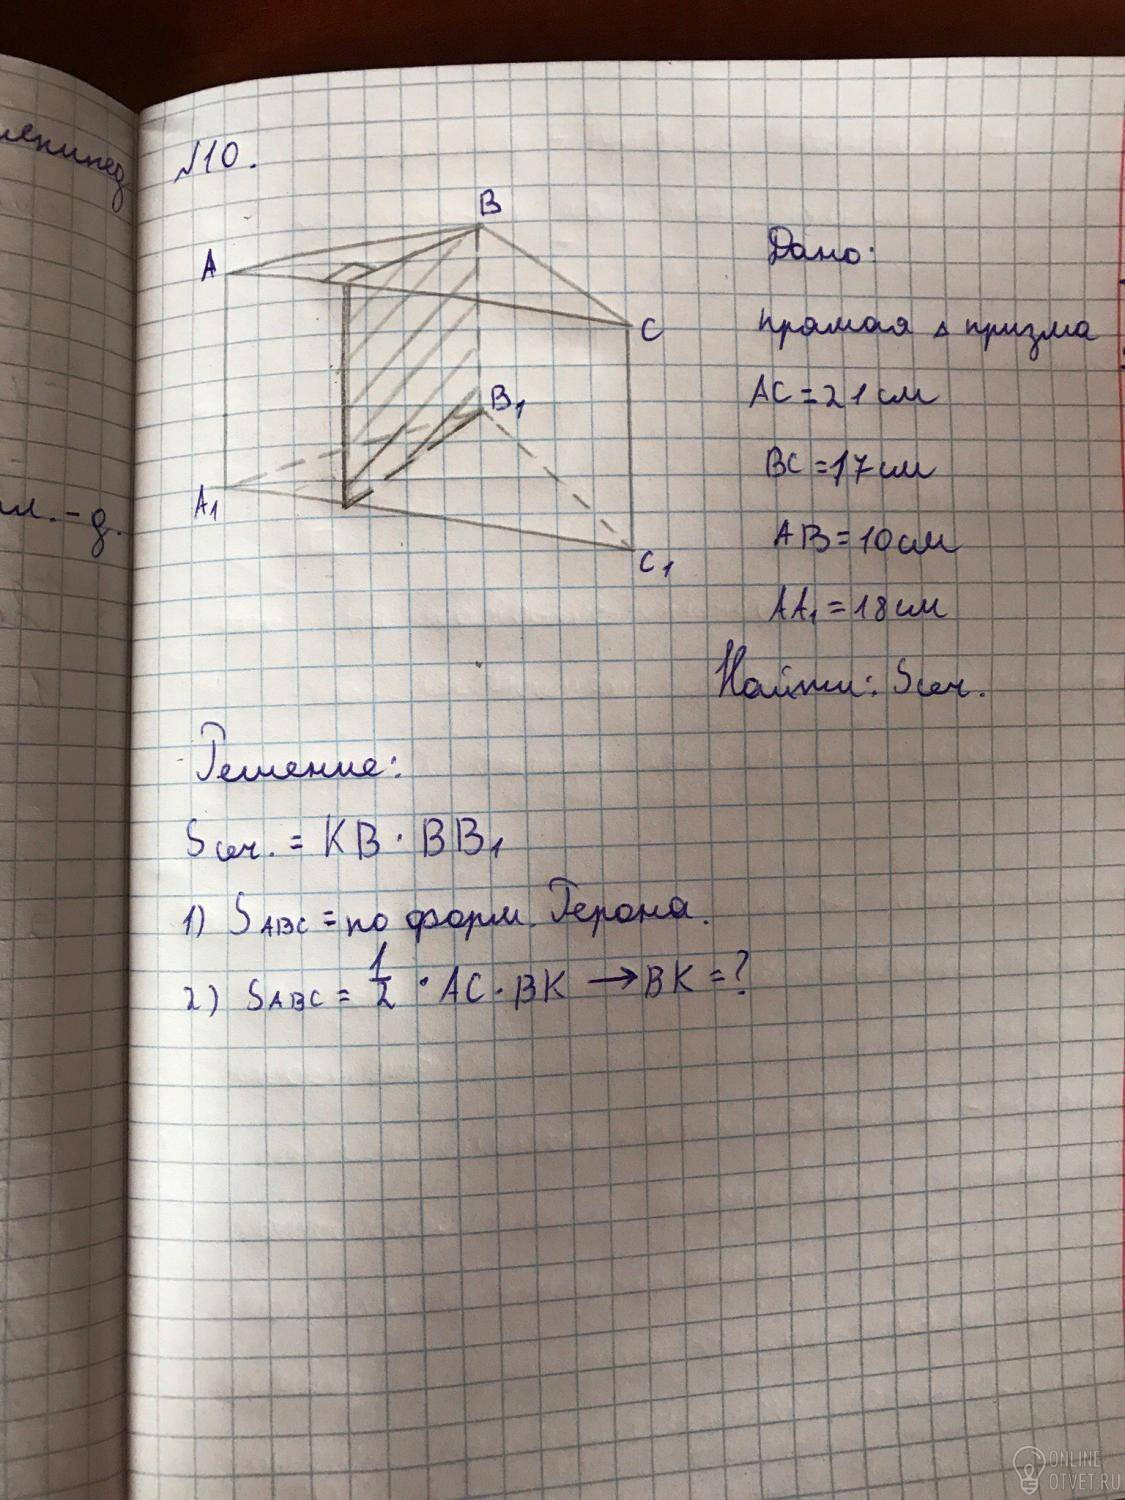 №10.
B
A
C
B₁
A₁
C₁
Дано:
прямая △ призма
AC = 21 см
BC = 17 см
AB = 10 см
AA₁ = 18 см
Найти: Sсеч.
Решение:
Sсеч. = KB · BB₁
1) SABC = по форм. Герона.
2) SABC = 1/2 · AC · BK → BK = ?
ONLINE
OTVET.RU